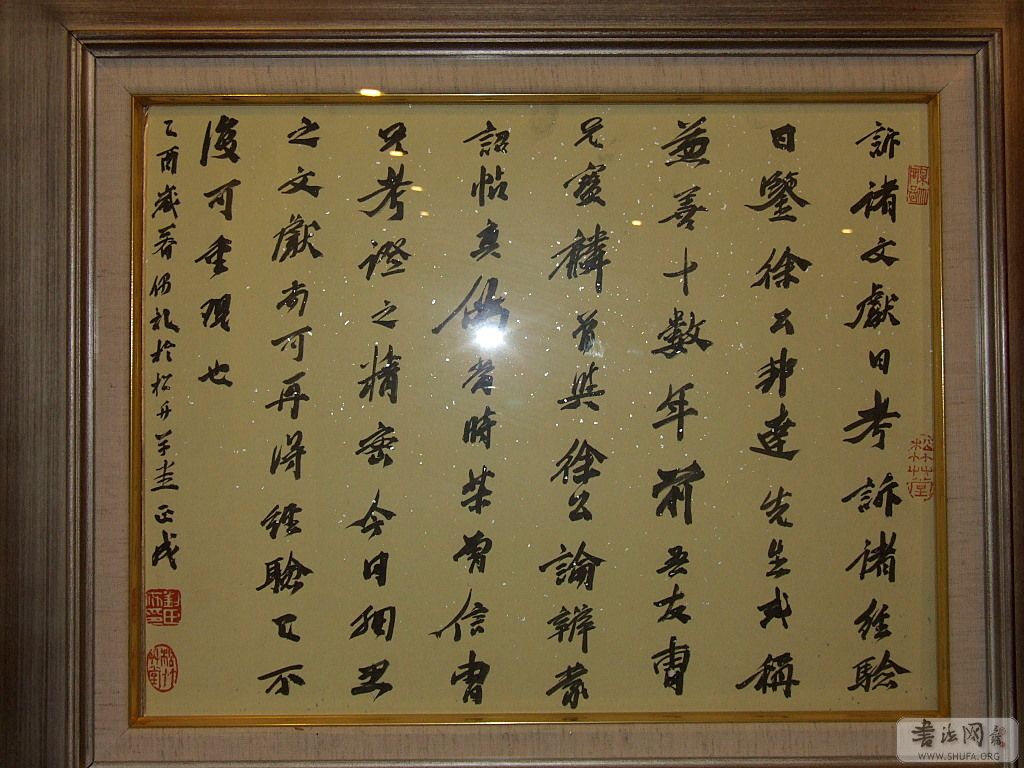 訴諸文獻曰考訴諸經驗
曰鑒徐公邦達先生或稱
兼善十數年前吾友曹
兄寶麟曾與徐公論辨蔡
詔帖真偽當時某曾信曹
兄考證之精密今日細思
之文獻尚可再得經驗已不
復可重現也
乙酉歲春仍於松竹草堂正成
書法网
WWW.SHUFA.ORG